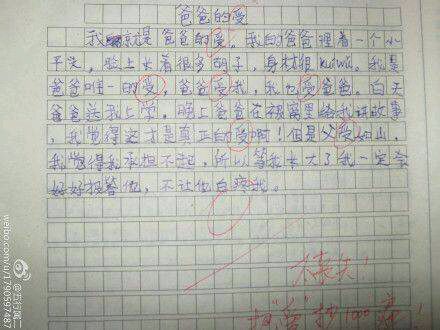 爸爸的爱
我就是爸爸的爱。我的爸爸理着一个小
平头，脸上长着很多胡子，身材很kuíwú。我是
爸爸唯一的爱，爸爸爱我，我也爱爸爸。白天
爸爸送我上学。晚上爸爸在被窝里给我讲故事
，我觉得这才是真正的爱啊！但是父爱如山，
我觉得我承担不起，所以等我长大了我一定会
好好报答他，不让他白疼我。
太丢失！
把“爱”抄1000遍！
weibo.com/u/1790597487